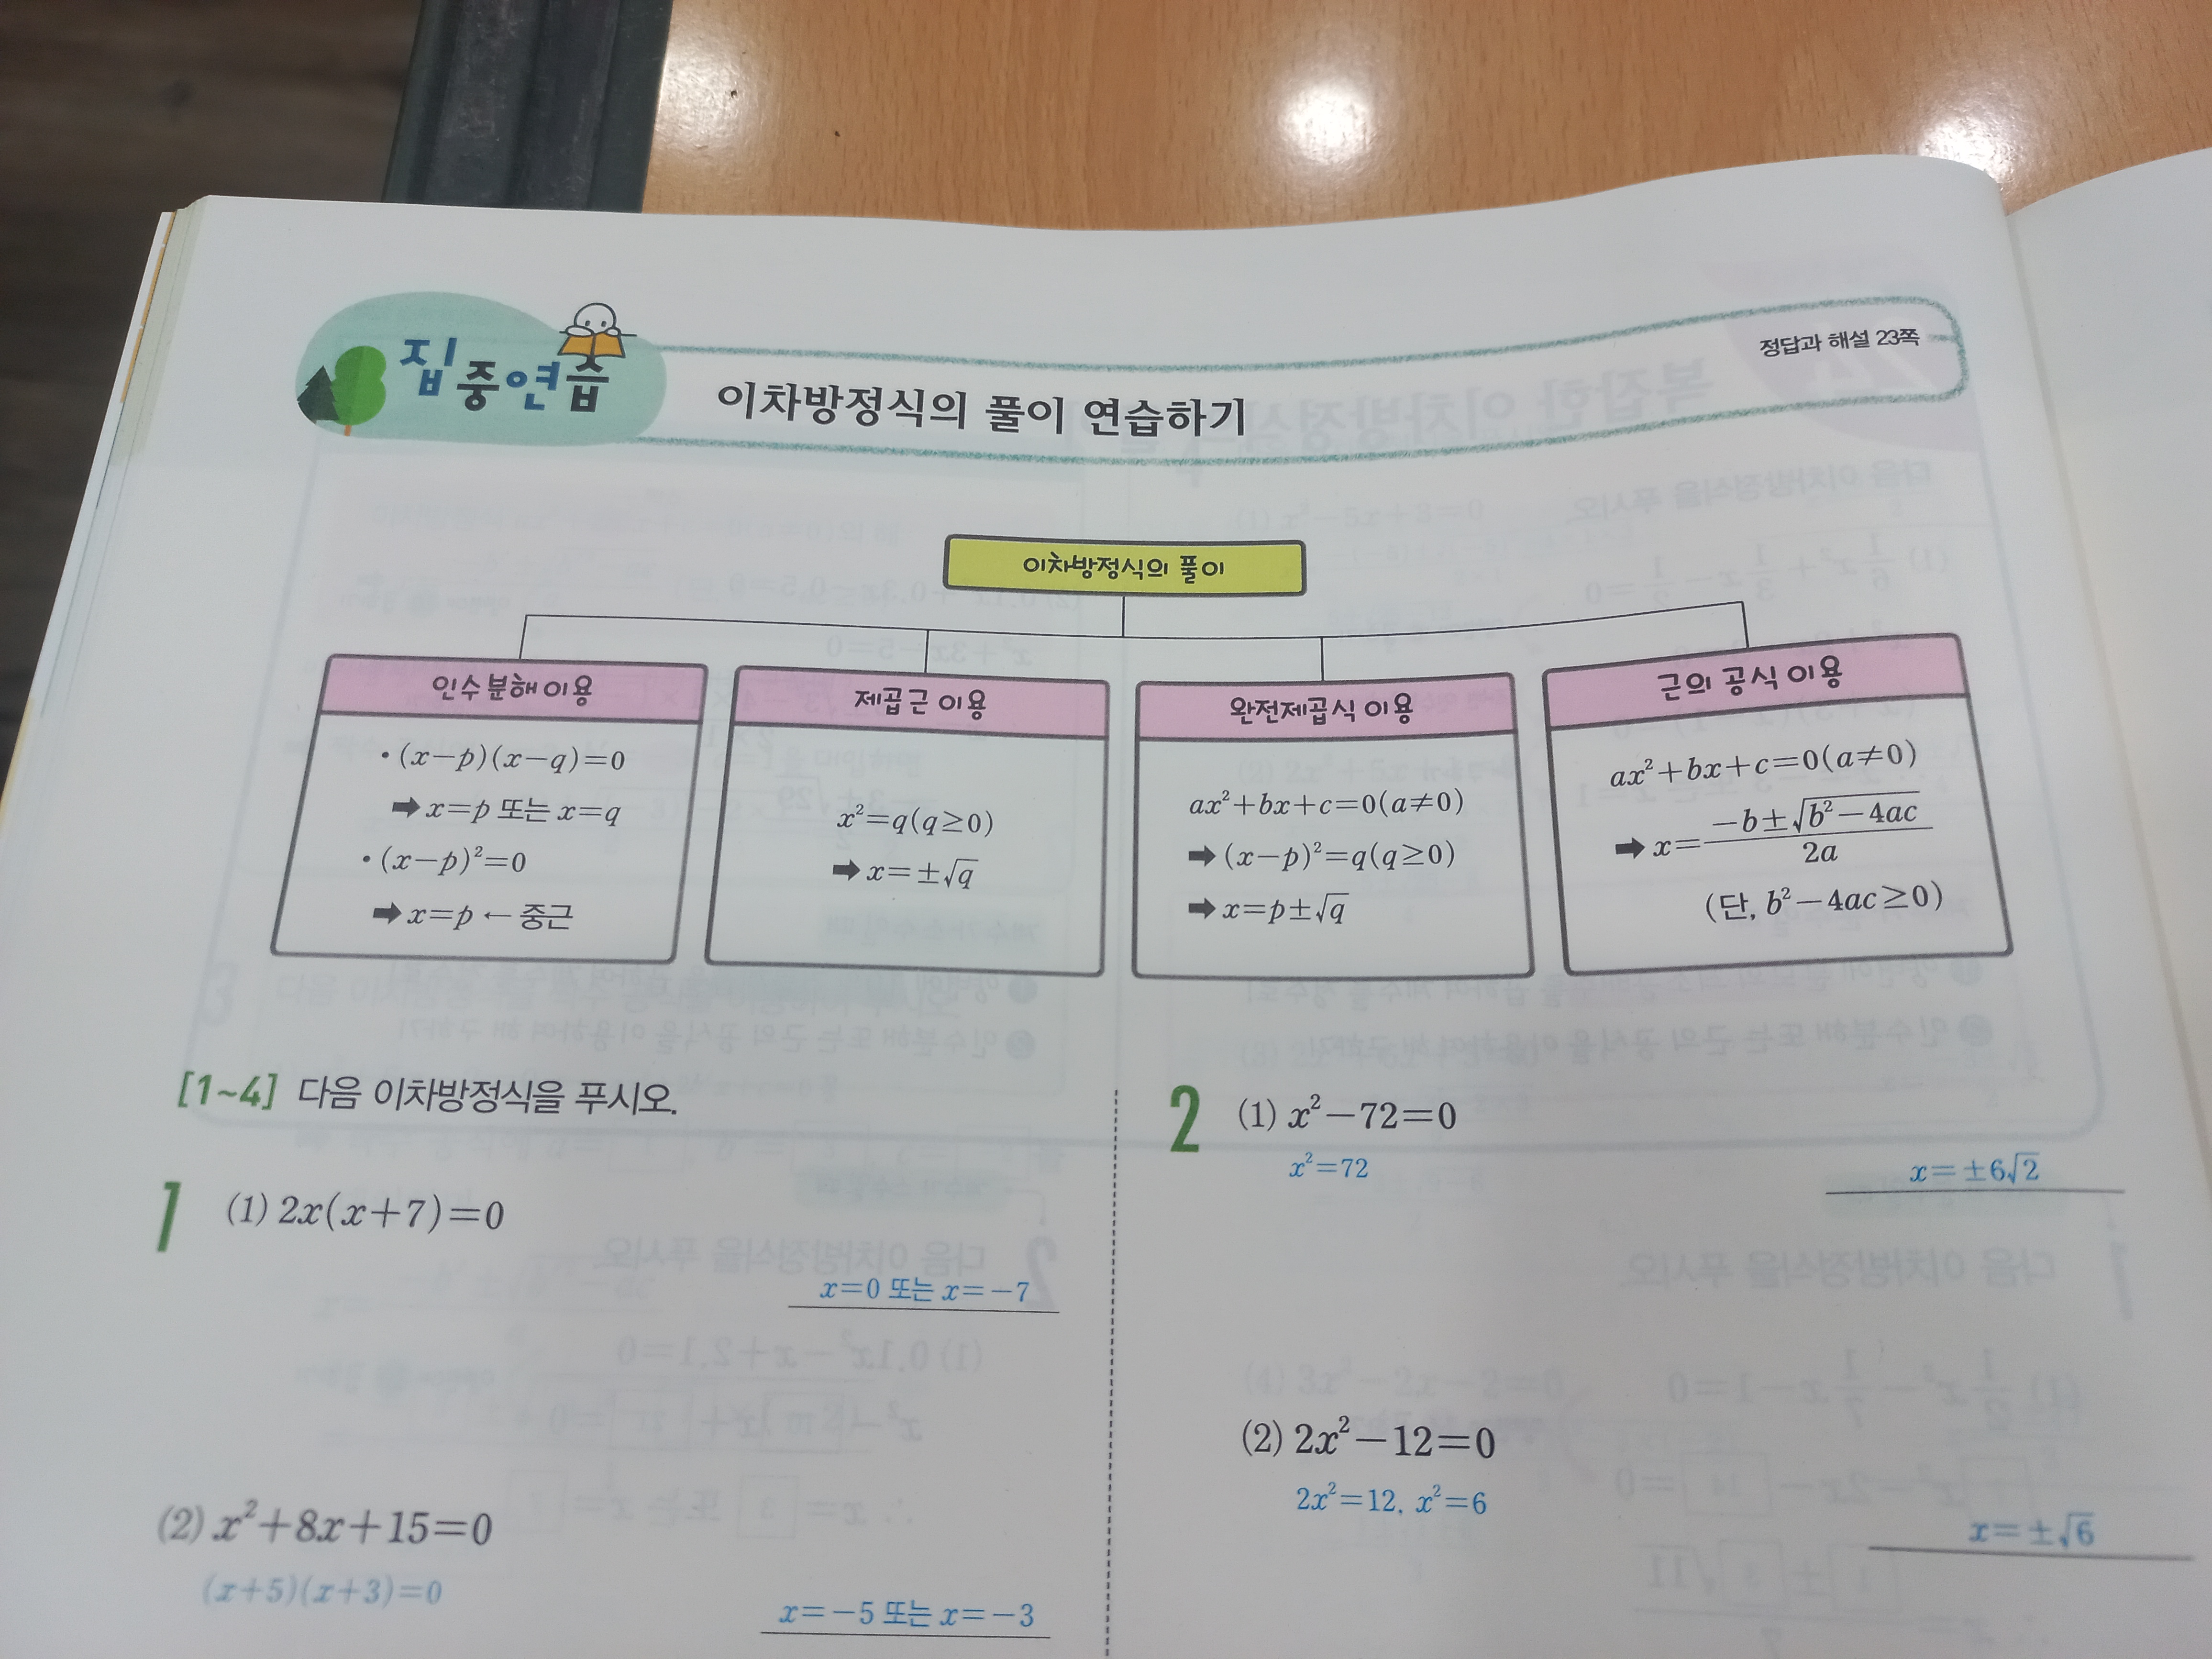 집중연습
이차방정식의 풀이 연습하기
정답과 해설 23쪽
이차방정식의 풀이
인수분해 이용
• (x-p)(x-q)=0
➡ x=p 또는 x=q
• (x-p)²=0
➡ x=p ← 중근
제곱근 이용
x²=q(q≥0)
➡ x=±√q
완전제곱식 이용
ax²+bx+c=0(a≠0)
➡ (x-p)²=q(q≥0)
➡ x=p±√q
근의 공식 이용
ax²+bx+c=0(a≠0)
➡ x=(-b±√(b²-4ac))/2a
(단, b²-4ac≥0)
[1~4] 다음 이차방정식을 푸시오.
1 (1) 2x(x+7)=0
x=0 또는 x=-7
(2) x²+8x+15=0
(x+5)(x+3)=0
x=-5 또는 x=-3
2 (1) x²-72=0
x²=72
x=±6√2
(2) 2x²-12=0
2x²=12, x²=6
x=±√6